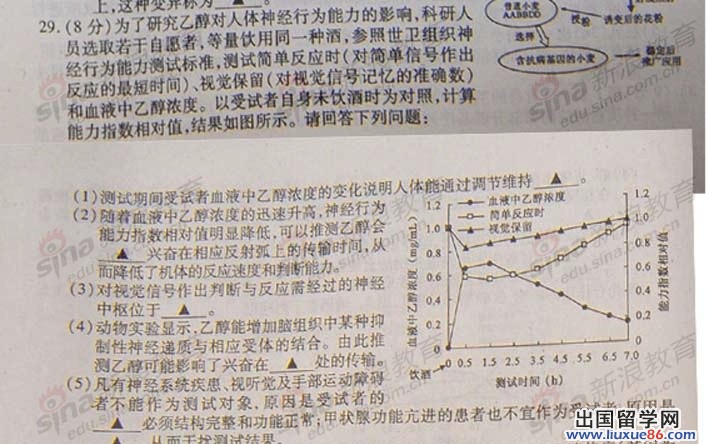 上,这种变异称为 ▲ 。
29.(8分)为了研究乙醇对人体神经行为能力的影响,科研人
员选取若干自愿者,等量饮用同一种酒,参照世卫组织神
经行为能力测试标准,测试简单反应时(对简单信号作出
反应的最短时间)、视觉保留(对视觉信号记忆的准确数)
和血液中乙醇浓度。以受试者自身未饮酒时为对照,计算
能力指数相对值,结果如图所示。请回答下列问题:
普通小麦
AABBDD
授粉
诱变后的花粉
选择
含抗病基因的小麦
稳定后
推广应用
(1)测试期间受试者血液中乙醇浓度的变化说明人体能通过调节维持 ▲ 。
(2)随着血液中乙醇浓度的迅速升高,神经行为
能力指数相对值明显降低,可以推测乙醇会
▲ 兴奋在相应反射弧上的传输时间,从
而降低了机体的反应速度和判断能力。
(3)对视觉信号作出判断与反应需经过的神经
中枢位于 ▲ 。
(4)动物实验显示,乙醇能增加脑组织中某种抑
制性神经递质与相应受体的结合。由此推
测乙醇可能影响了兴奋在 ▲ 处的传输。
(5)凡有神经系统疾患、视听觉及手部运动障碍
者不能作为测试对象,原因是受试者的
▲ 必须结构完整和功能正常;甲状腺功能亢进的患者也不宜作为受试者,原因是
▲ ,从而干扰测试结果。
血液中乙醇浓度
简单反应时
视觉保留
血液中乙醇浓度(mg/mL)
1.2
1.0
0.8
0.6
0.4
0.2
0
能力指数相对值
1.2
1.0
0.8
0.6
0.4
0.2
0
0 0.5 1.5 2.5 3.5 4.5 5.5 6.5 7.0
饮酒
测试时间(h)
sina新浪教育
edu.sina.com.cn
出国留学网
www.liuxue86.com